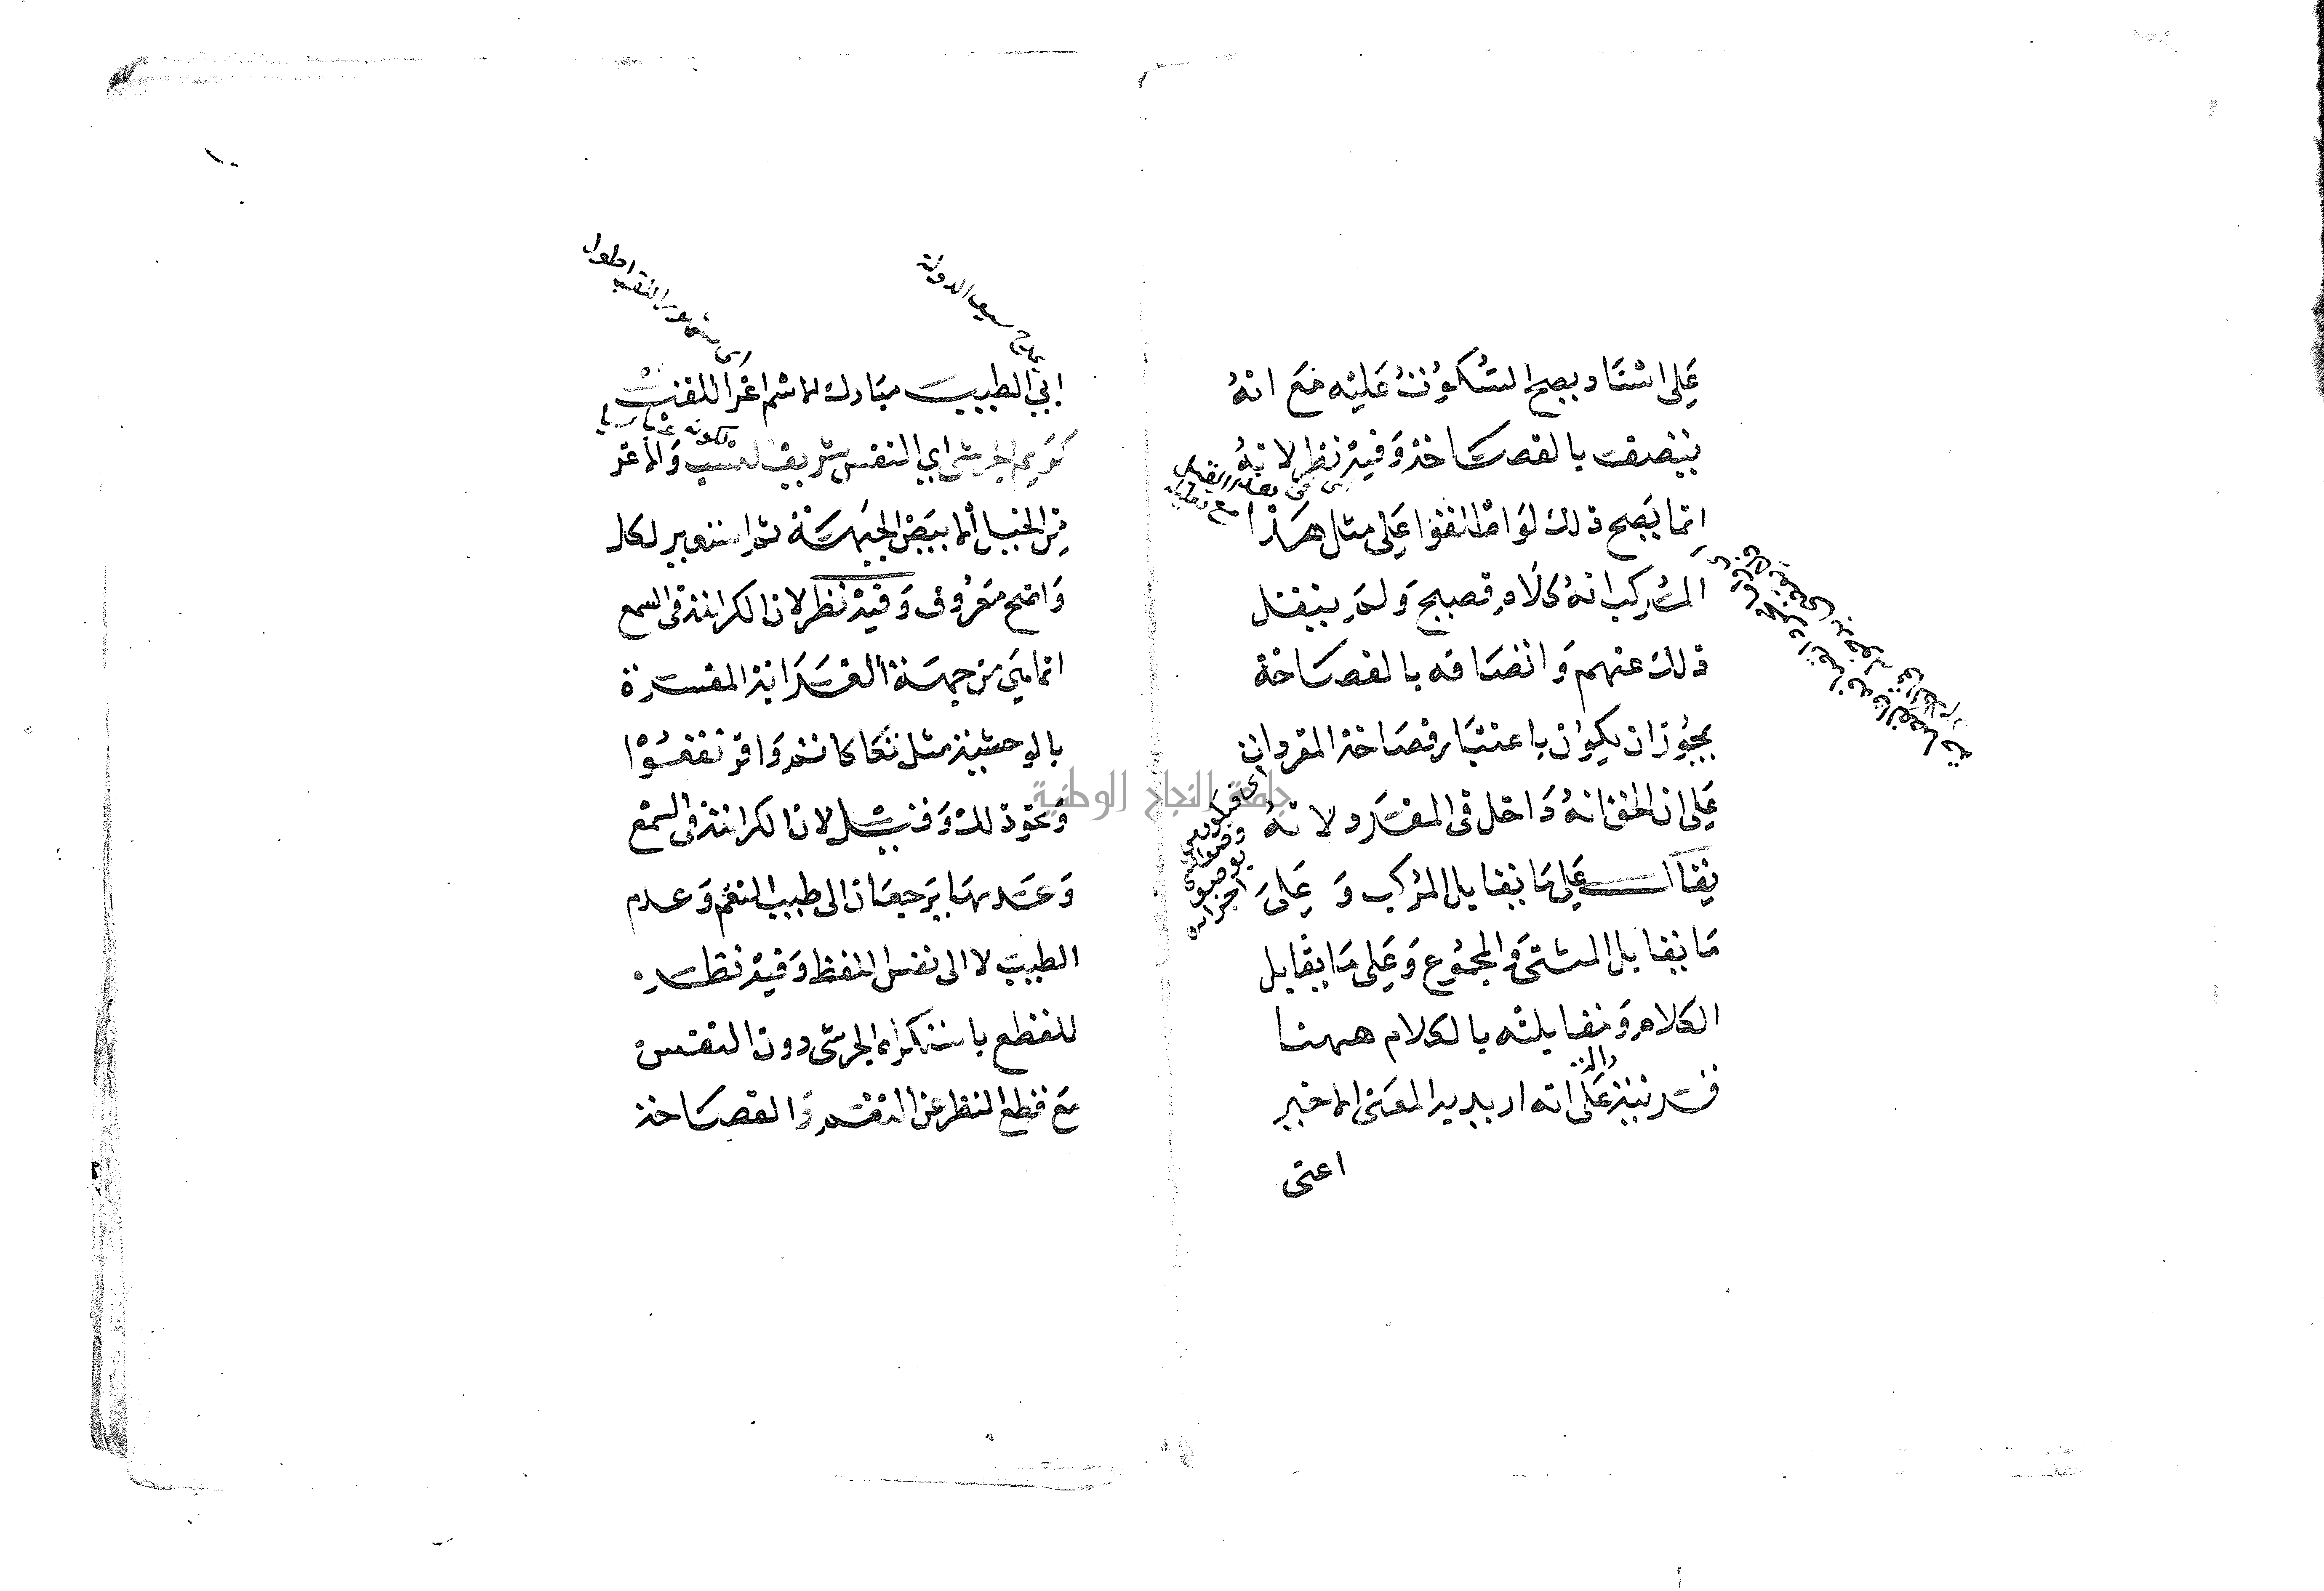 على اسناد يصح السكوت عليه مع انه
يتصف بالفصاحة وفيه نظر لانه
انما يصح ذلك لو اطلقوا على مثل هذا
المركب انه كلام فصيح ولم ينقل
ذلك عنهم واتصافه بالفصاحة
يجوز ان يكون باعتبار فصاحة المفردات
على ان الحق انه داخل في المفرد لانه
يقال على ما يقابل المركب وعلى
ما يقابل المثنى والمجموع وعلى ما يقابل
الكلام ومقابلته بالكلام ههنا
قرينة دالة على انه اريد به المعنى الاخير
اعنى
مدح سيف الدولة
ابي الطيب مبارك الاسم اغر اللقب
كريم الجرشى اي النفس شريف النسب والاغر
من الخيل الابيض الجبهة ثم استعير لكل
واضح معروف وفيه نظر لان الكراهة في السمع
انما هي من جهة الغرابة المفسرة
بالوحشية مثل تكأكأتم وافرنقعوا
ونحو ذلك وقيل لان الكراهة في السمع
وعدمها يرجعان الى طيب النغم وعدم
الطيب لا الى نفس اللفظ وفيه نظر
للقطع باستكراه الجرشى دون النفس
مع قطع النظر عن النغم والفصاحة
جامعة النجاح الوطنية